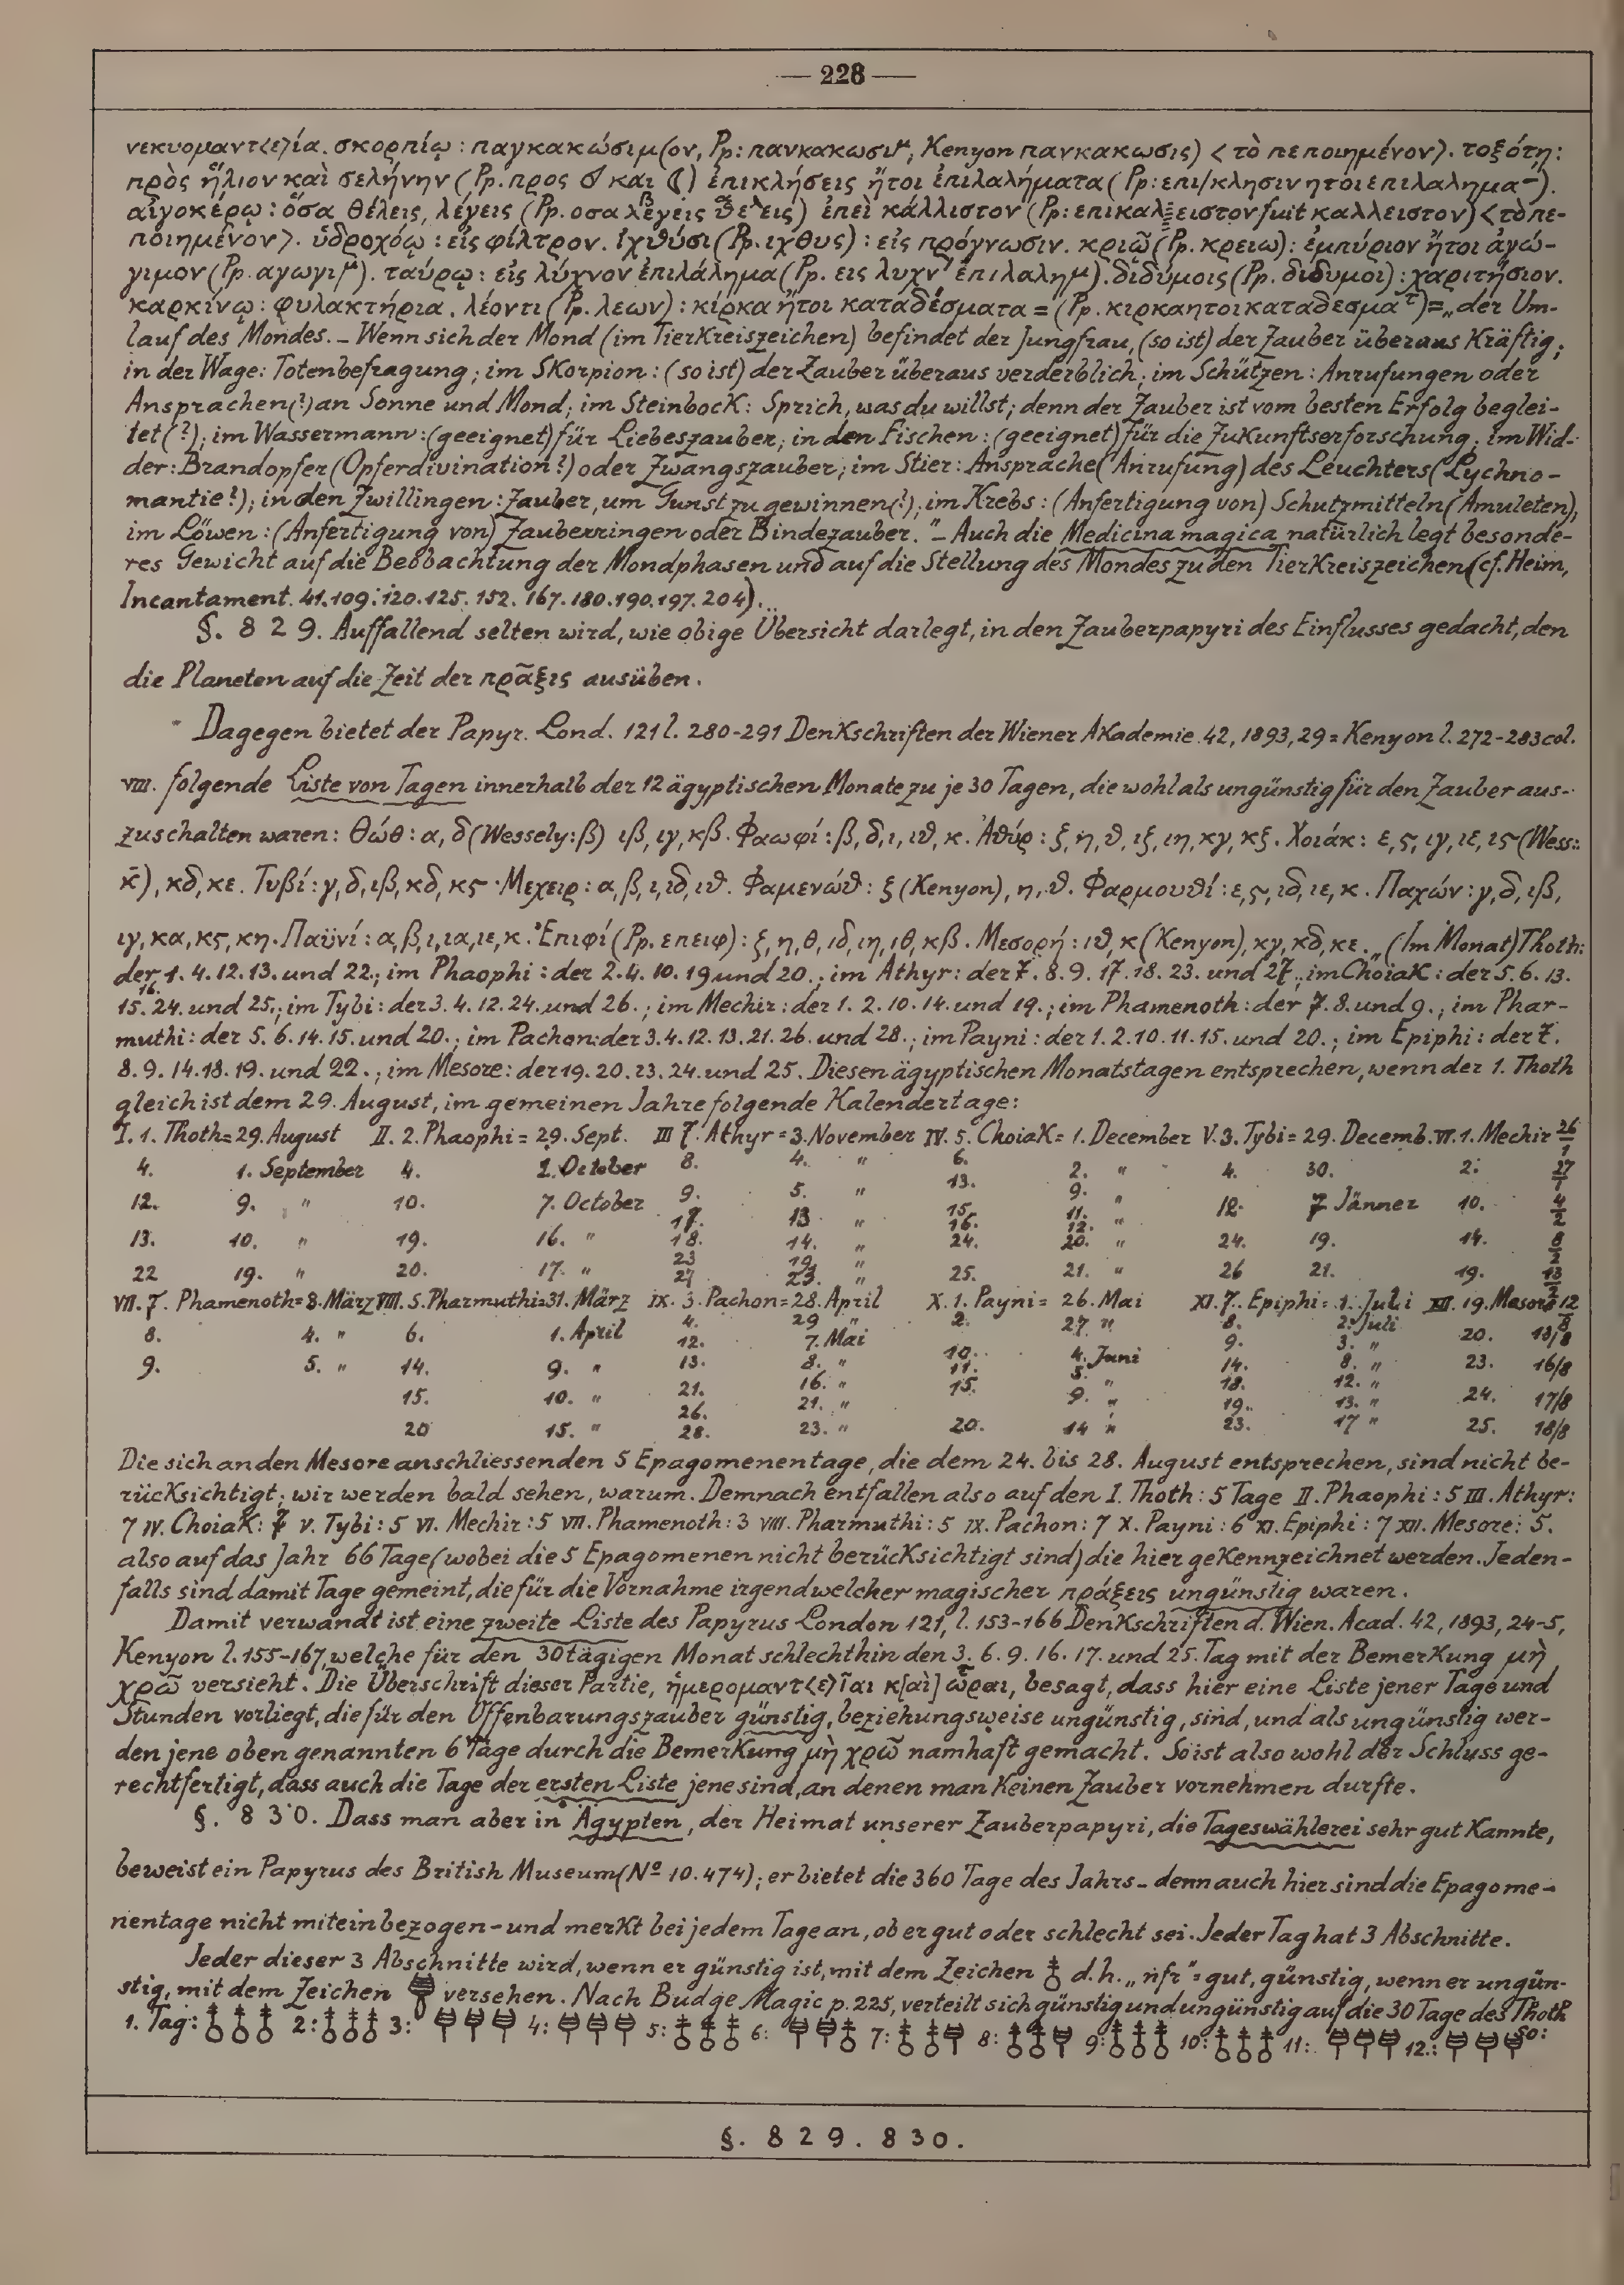 — 228 —
νεκυομαντ<ε>ία. σκορπίῳ : παγκακώσιμ(ον, Pp: πανκακωσιμ, Kenyon πανκακωσις) < τὸ πεποιημένον>. τοξότῃ:
πρὸς ἥλιον καὶ σελήνην (Pp. προς ☌ και ☾) ἐπικλήσεις ἤτοι ἐπιλαλήματα (Pp: επι/κλησιν ητοι επιλαλημα–).
αἰγοκέρῳ : ὅσα θέλεις, λέγεις (Pp. οσα λεγεις θελεις) ἐπεὶ κάλλιστον (Pp: επικαλ ειστον fuit καλλειστον) <τὸ πε-
ποιημένον>. ὑδροχόῳ : εἰς φίλτρον. ἰχθύσι (Pp. ιχθυς) : εἰς πρόγνωσιν. κριῷ (Pp. κρειω) : ἐμπύριον ἤτοι ἀγώ-
γιμον (Pp. αγωγιμ). ταύρῳ : εἰς λύχνον ἐπιλάλημα (Pp. εις λυχν επιλαλημ). διδύμοις (Pp. διδυμοι) : χαριτήσιον.
καρκίνῳ : φυλακτήρια. λέοντι (Pp. λεων) : κίρκα ἤτοι καταδέσματα = (Pp. κιρκαητοικαταδεσμα τ) = „der Um-
lauf des Mondes. – Wenn sich der Mond (im Tierkreiszeichen) befindet der Jungfrau, (so ist) der Zauber überaus kräftig;
in der Wage: Totenbefragung; im Skorpion: (so ist) der Zauber überaus verderblich; im Schützen: Anrufungen oder
Ansprachen(?) an Sonne und Mond; im Steinbock: Sprich, was du willst; denn der Zauber ist vom besten Erfolg beglei-
tet(?); im Wassermann: (geeignet) für Liebeszauber; in den Fischen: (geeignet) für die Zukunftserforschung; im Wid-
der: Brandopfer (Opferdivination?) oder Zwangszauber; im Stier: Ansprache (Anrufung) des Leuchters (Lychno-
mantie?); in den Zwillingen: Zauber, um Gunst zu gewinnen(?); im Krebs: (Anfertigung von) Schutzmitteln (Amuleten),
im Löwen: (Anfertigung von) Zauberringen oder Bindezauber." – Auch die Medicina magica natürlich legt besonde-
res Gewicht auf die Beobachtung der Mondphasen und auf die Stellung des Mondes zu den Tierkreiszeichen (cf. Heim,
Incantament. 41. 109. 120. 125. 152. 167. 180. 190. 197. 204).
§. 829. Auffallend selten wird, wie obige Übersicht darlegt, in den Zauberpapyri des Einflusses gedacht, den
die Planeten auf die Zeit der πρᾶξις ausüben.
Dagegen bietet der Papyr. Lond. 121 l. 280-291 Denkschriften der Wiener Akademie 42, 1893, 29 = Kenyon l. 272-283 col.
VIII. folgende Liste von Tagen innerhalb der 12 ägyptischen Monate zu je 30 Tagen, die wohl als ungünstig für den Zauber aus-
zuschalten waren: Θώθ : α, δ (Wessely: β) ιβ, ιγ, κβ. Φαωφί : β, δ, ι, ιθ, κ. Ἀθύρ : ξ, η, θ, ιξ, ιη, κγ, κξ. Χοιάκ : ε, ς, ιγ, ιε, ις (Wess.:
κ̄), κδ, κε. Τυβί : γ, δ, ιβ, κδ, κς. Μεχειρ : α, β, ι, ιδ, ιθ. Φαμενώθ : ξ (Kenyon), η, θ. Φαρμουθί : ε, ς, ιδ, ιε, κ. Παχών : γ, δ, ιβ,
ιγ, κα, κς, κη. Παϋνί : α, β, ι, ια, ιε, κ. Ἐπιφί (Pp. επειφ) : ξ, η, θ, ιδ, ιη, ιθ, κβ. Μεσορή : ιθ, κ (Kenyon), κγ, κδ, κε. „(Im Monat) Thoth:
der 1. 4. 12. 13. und 22.; im Phaophi: der 2. 4. 10. 19 und 20.; im Athyr: der 7. 8. 9. 17. 18. 23. und 27.; im Choiak: der 5. 6. 13.
15. 16. 24. und 25.; im Tybi: der 3. 4. 12. 24. und 26.; im Mechir: der 1. 2. 10. 14. und 19.; im Phamenoth: der 7. 8. und 9.; im Phar-
muthi: der 5. 6. 14. 15. und 20.; im Pachon: der 3. 4. 12. 13. 21. 26. und 28.; im Payni: der 1. 2. 10. 11. 15. und 20.; im Epiphi: der 7.
8. 9. 14. 18. 19. und 22.; im Mesore: der 19. 20. 23. 24. und 25. Diesen ägyptischen Monatstagen entsprechen, wenn der 1. Thoth
gleich ist dem 29. August, im gemeinen Jahre folgende Kalendertage:
I. 1. Thoth = 29. August II. 2. Phaophi = 29. Sept. III 7. Athyr = 3. November IV. 5. Choiak = 1. December V. 3. Tybi = 29. Decemb. VI. 1. Mechir 26/1
4. 1. September 4. 1. October 8. 4. " 6. 2. " 4. 30. 2. 27/1
12. 9. " 10. 7. October 9. 5. " 13. 9. " 12. 7 Jänner 10. 4/2
17. 13 " 15. 11.
13. 10. " 19. 16. " 18. 14. " 16. 12. " 24. 19. 14. 8/2
23 19. 24. 20. "
22 19. " 20. 17. " 27 23. " 25. 21. " 26 21. 19. 13/2
VII. 7. Phamenoth = 3. März VIII. 5. Pharmuthi = 31. März IX. 3. Pachon = 28. April X. 1. Payni = 26. Mai XI. 7. Epiphi = 1. Juli XII. 19. Mesore 12/8
8. 4. " 6. 1. April 4. 29 " 2. 27 " 8. 2. Juli 20. 13/8
12. 7. Mai 10. 4. Juni 9. 3. "
9. 5. " 14. 9. " 13. 8. " 11. 5. " 14. 8. " 23. 16/8
15. 10. " 21. 16. " 15. 9. " 18. 12. " 24. 17/8
26. 21. " 19. 13. "
20 15. " 28. 23. " 20. 14 " 23. 17 " 25. 18/8
Die sich an den Mesore anschliessenden 5 Epagomenentage, die dem 24. bis 28. August entsprechen, sind nicht be-
rücksichtigt; wir werden bald sehen, warum. Demnach entfallen also auf den I. Thoth: 5 Tage II. Phaophi: 5 III. Athyr:
7 IV. Choiak: 7 V. Tybi: 5 VI. Mechir: 5 VII. Phamenoth: 3 VIII. Pharmuthi: 5 IX. Pachon: 7 X. Payni: 6 XI. Epiphi: 7 XII. Mesore: 5.
also auf das Jahr 66 Tage (wobei die 5 Epagomenen nicht berücksichtigt sind) die hier gekennzeichnet werden. Jeden-
falls sind damit Tage gemeint, die für die Vornahme irgendwelcher magischer πράξεις ungünstig waren.
Damit verwandt ist eine zweite Liste des Papyrus London 121, l. 153-166 Denkschriften d. Wien. Acad. 42, 1893, 24-5,
Kenyon l. 155-167, welche für den 30tägigen Monat schlechthin den 3. 6. 9. 16. 17. und 25. Tag mit der Bemerkung μὴ
χρῶ versieht. Die Überschrift dieser Partie, ἡμερομαντ<ε>ῖαι κ[αὶ] ὧραι, besagt, dass hier eine Liste jener Tage und
Stunden vorliegt, die für den Offenbarungszauber günstig, beziehungsweise ungünstig, sind, und als ungünstig wer-
den jene oben genannten 6 Tage durch die Bemerkung μὴ χρῶ namhaft gemacht. So ist also wohl der Schluss ge-
rechtfertigt, dass auch die Tage der ersten Liste jene sind, an denen man keinen Zauber vornehmen durfte.
§. 830. Dass man aber in Ägypten, der Heimat unserer Zauberpapyri, die Tageswählerei sehr gut kannte,
beweist ein Papyrus des British Museum (Nº 10.474); er bietet die 360 Tage des Jahrs – denn auch hier sind die Epagome-
nentage nicht miteinbezogen – und merkt bei jedem Tage an, ob er gut oder schlecht sei. Jeder Tag hat 3 Abschnitte.
Jeder dieser 3 Abschnitte wird, wenn er günstig ist, mit dem Zeichen d.h. „nfr" = gut, günstig, wenn er ungün-
stig, mit dem Zeichen versehen. Nach Budge Magic p. 225, verteilt sich günstig und ungünstig auf die 30 Tage des Thoth
so:
1. Tag: 2: 3: 4: 5: 6: 7: 8: 9: 10: 11: 12.:
§. 829. 830.